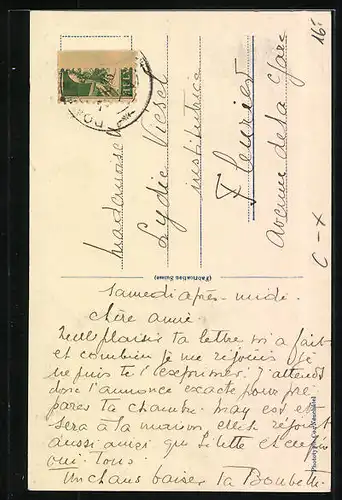 Mademoiselle
Lydie
institutrice
Fleurier
Avenue de la Gare
16.-
C - X
(Fabrication Suisse)
Samedi après-midi.
Chère amie.
Quel plaisir ta lettre m'a fait
et combien je me réjouis je
ne puis te l'exprimer. J'attends
donc l'annonce exacte pour pré
parer ta chambre. May est et
sera à la maison, elle se réjouit
aussi ainsi que et enfin
oui tous.
Un chaud baiser ta